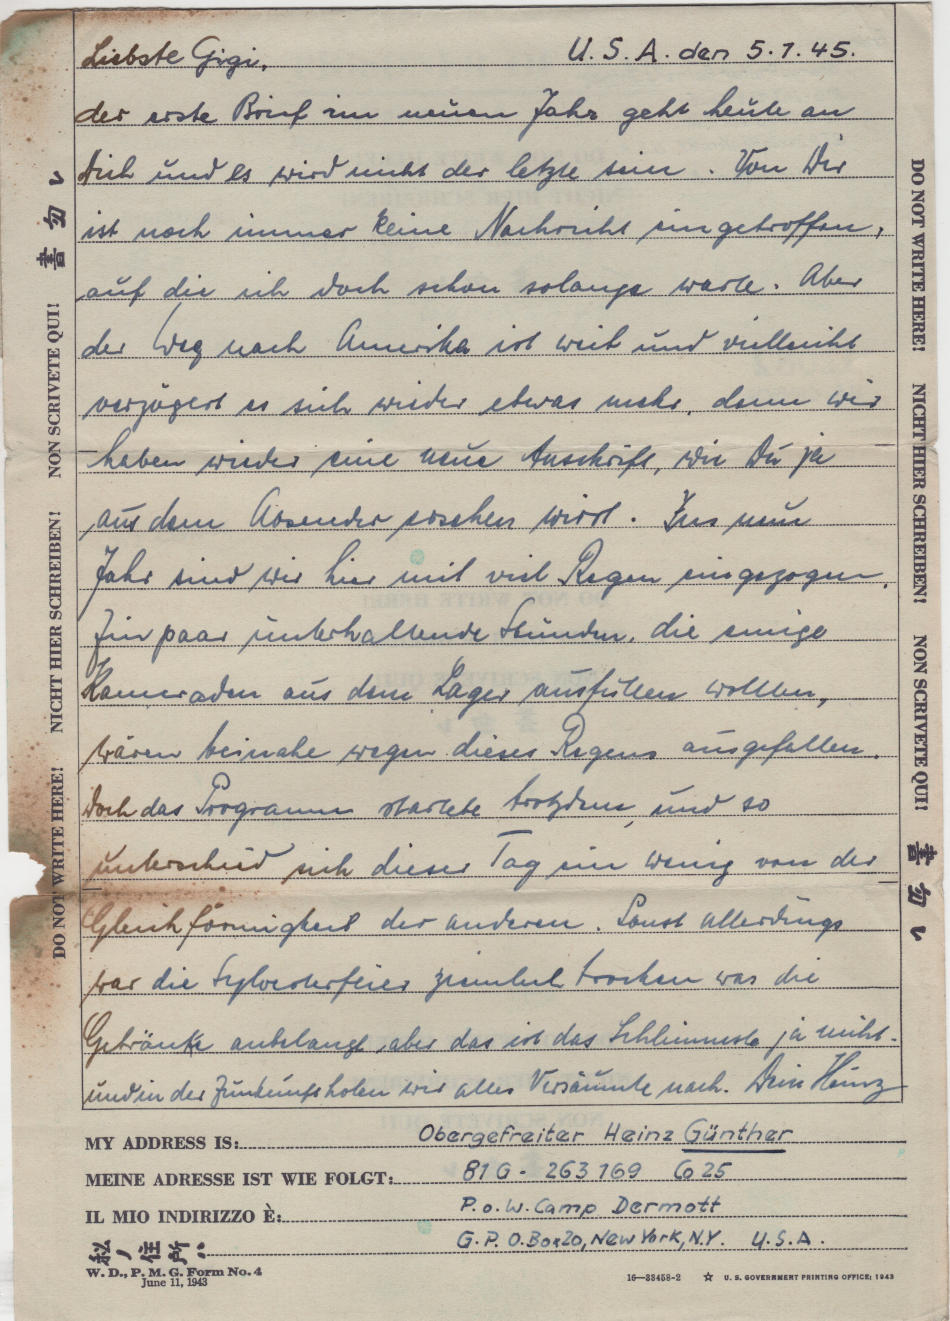 Liebste Gigi, U.S.A. den 5.1.45.
der erste Brief im neuen Jahr geht heute an
Dich und es wird nicht der letzte sein. Von Dir
ist noch immer keine Nachricht eingetroffen,
auf die ich doch schon solange warte. Aber
der Weg nach Amerika ist weit und vielleicht
verzögert es sich wieder etwas mehr, denn wir
haben wieder eine neue Anschrift, wie Du ja
aus dem Absender ersehen wirst. Ins neue
Jahr sind wir hier mit viel Regen eingezogen.
Ein paar unterhaltende Stunden, die einige
Kameraden aus dem Lager ausfüllen wollten,
wären beinahe wegen dieses Regens ausgefallen.
Doch das Programm startete trotzdem, und so
unterschied sich dieser Tag ein wenig von der
Gleichförmigkeit der anderen. Sonst allerdings
war die Sylvesterfeier ziemlich trocken was die
Getränke anbelangt, aber das ist das Schlimmste ja nicht.
und in der Zunkunft holen wir alles Versäumte nach. Dein Heinz
MY ADDRESS IS: Obergefreiter Heinz Günther
MEINE ADRESSE IST WIE FOLGT: 81G-263169 Co 25
IL MIO INDIRIZZO È: P.o.W. Camp Dermott
私ノ住所ハ G.P.O. Box 20, New York, N.Y. U.S.A.
W. D., P. M. G. Form No. 4
June 11, 1943
16—33458-2 ☆ U. S. GOVERNMENT PRINTING OFFICE: 1943
DO NOT WRITE HERE! NICHT HIER SCHREIBEN! NON SCRIVETE QUI! 書勿レ
DO NOT WRITE HERE! NICHT HIER SCHREIBEN! NON SCRIVETE QUI! 書勿レ